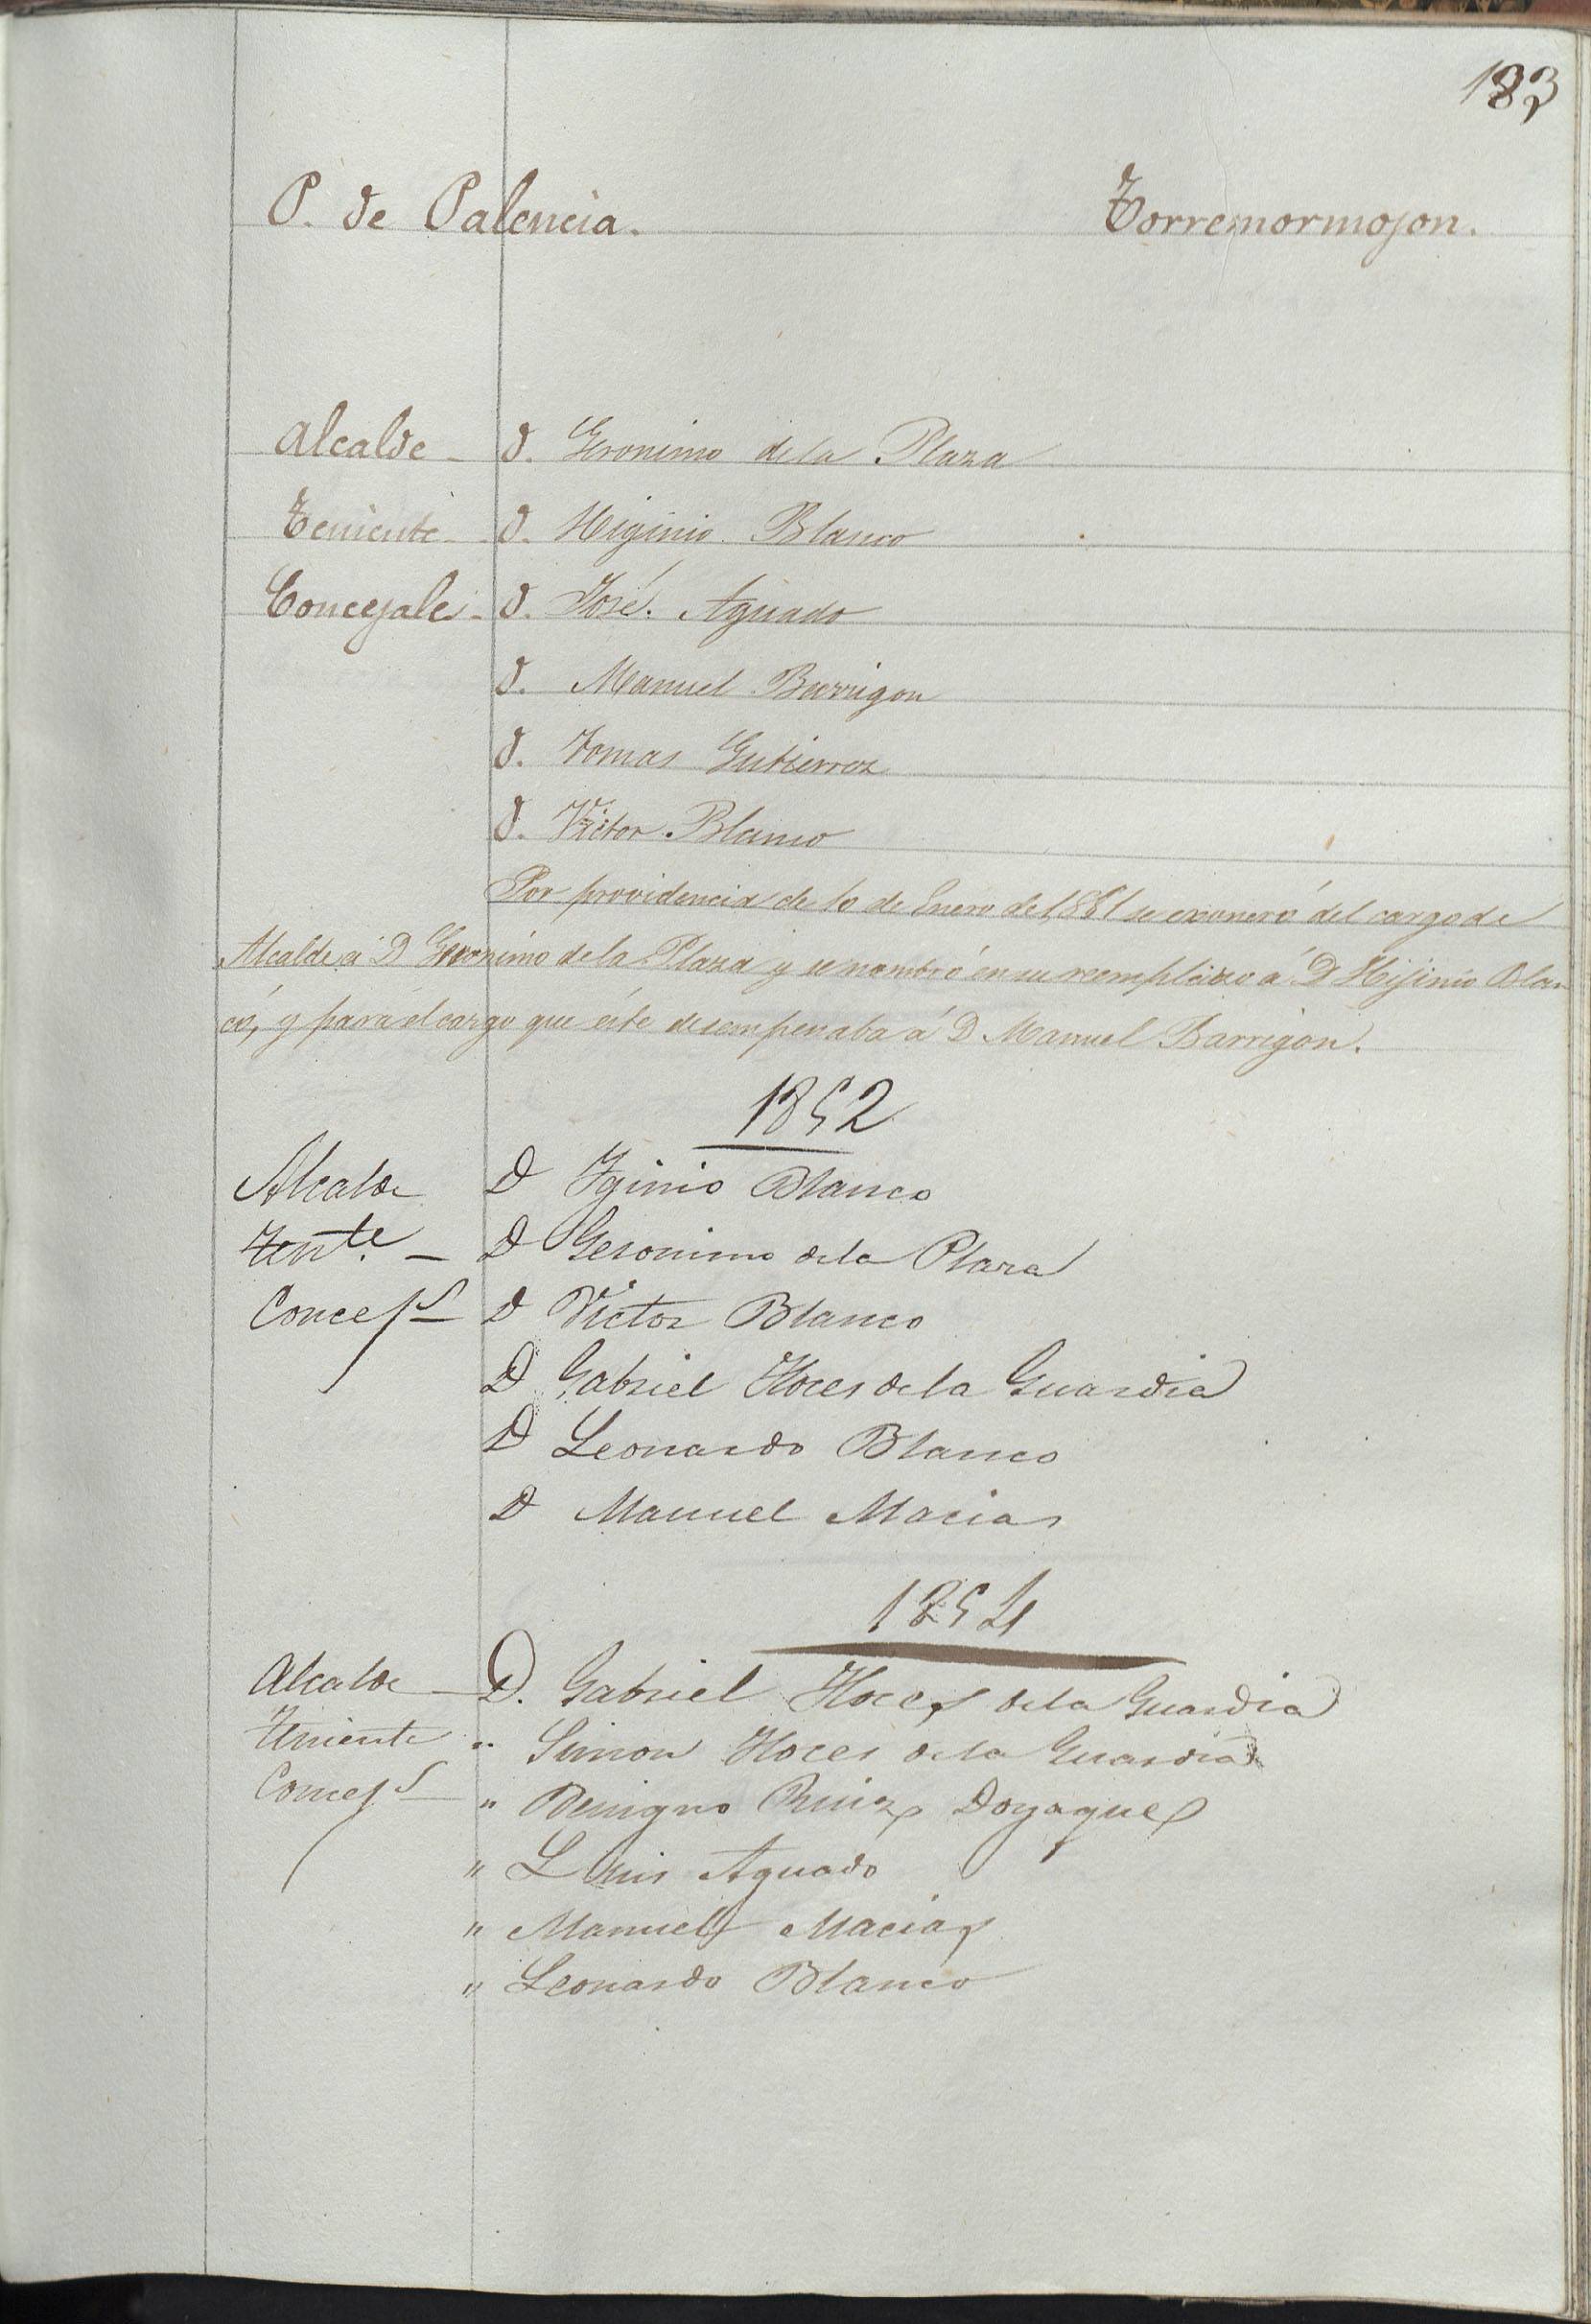 183
P. de Palencia. Torremormojon.
Alcalde - D. Geronimo de la Plaza
Teniente - D. Higinio Blanco
Concejales - D. José Aguado
D. Manuel Barrigon
D. Tomas Gutierrez
D. Victor Blanco
Por providencia de 10 de Enero de 1,851 se exoneró del cargo de
Alcalde á D Geronimo de la Plaza y se nombró en su reemplazo á D Hijinio Blan
co, y para el cargo que éste desempeñaba á D Manuel Barrigon.
1852
Alcalde D Iginio Blanco
Tente. - D Geronimo de la Plaza
Concejs D Victor Blanco
D Gabriel Hoces de la Guardia
D Leonardo Blanco
D Manuel Macias
1854
Alcalde D. Gabriel Hoces de la Guardia
Teniente " Simon Hoces de la Guardia
Concejs " Benigno Ruiz Doyagues
" Luis Aguado
" Manuel Macias
" Leonardo Blanco